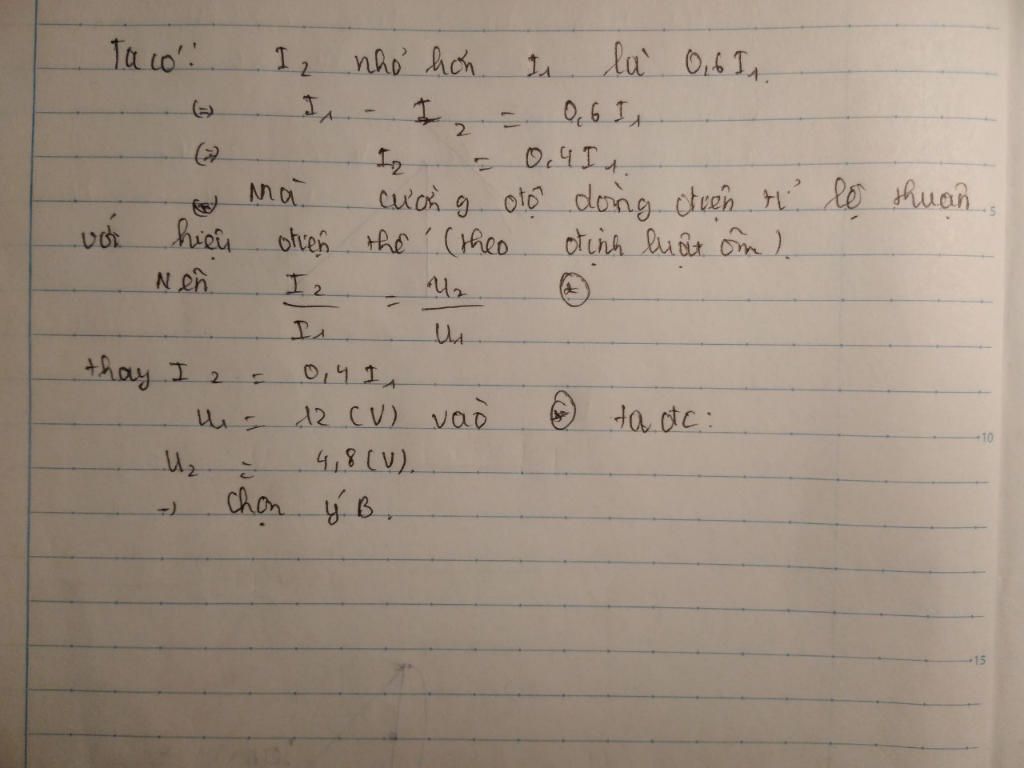 Ta có: I2 nhỏ hơn I1 là 0,6I1.
(=) I1 - I2 = 0,6I1
(=) I2 = 0,4I1.
Mà cường độ dòng điện tỉ lệ thuận
với hiệu điện thế (theo định luật ôm).
Nên I2/I1 = U2/U1 (*)
thay I2 = 0,4I1
U1 = 12 (V) vào (*) ta đc:
U2 = 4,8 (V).
→ chọn ý B.